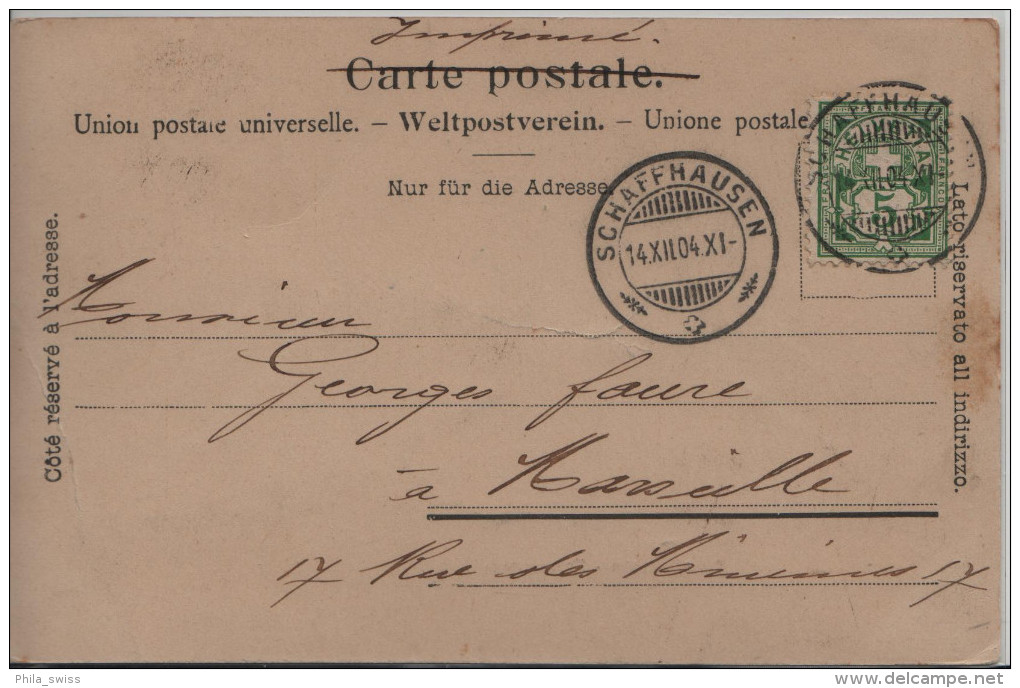 Imprimé.
Carte postale.
Union postale universelle. – Weltpostverein. – Unione postale
Nur für die Adresse.
SCHAFFHAUSEN
14.XII.04.XI-
5
Côté réservé à l'adresse.
Lato riservato all indirizzo.
Monsieur
Georges Faure
à Marseille
17 Rue des Minimes 17
Phila_swiss